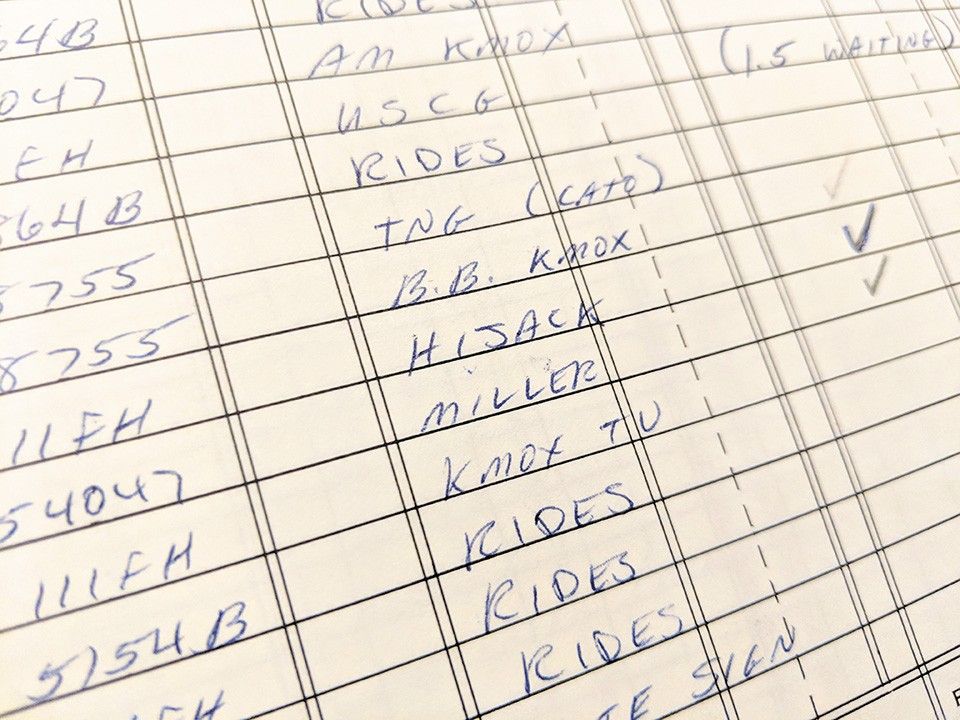 4B RIDES
047 AM KMOX
FH USCG (1.5 WAITING)
64B RIDES
8755 TNG (CATO)
8755 B.B. KMOX
11FH HIJACK
54047 MILLER
111FH KMOX TV
5154B RIDES
FH RIDES
RIDES
TE SIGN